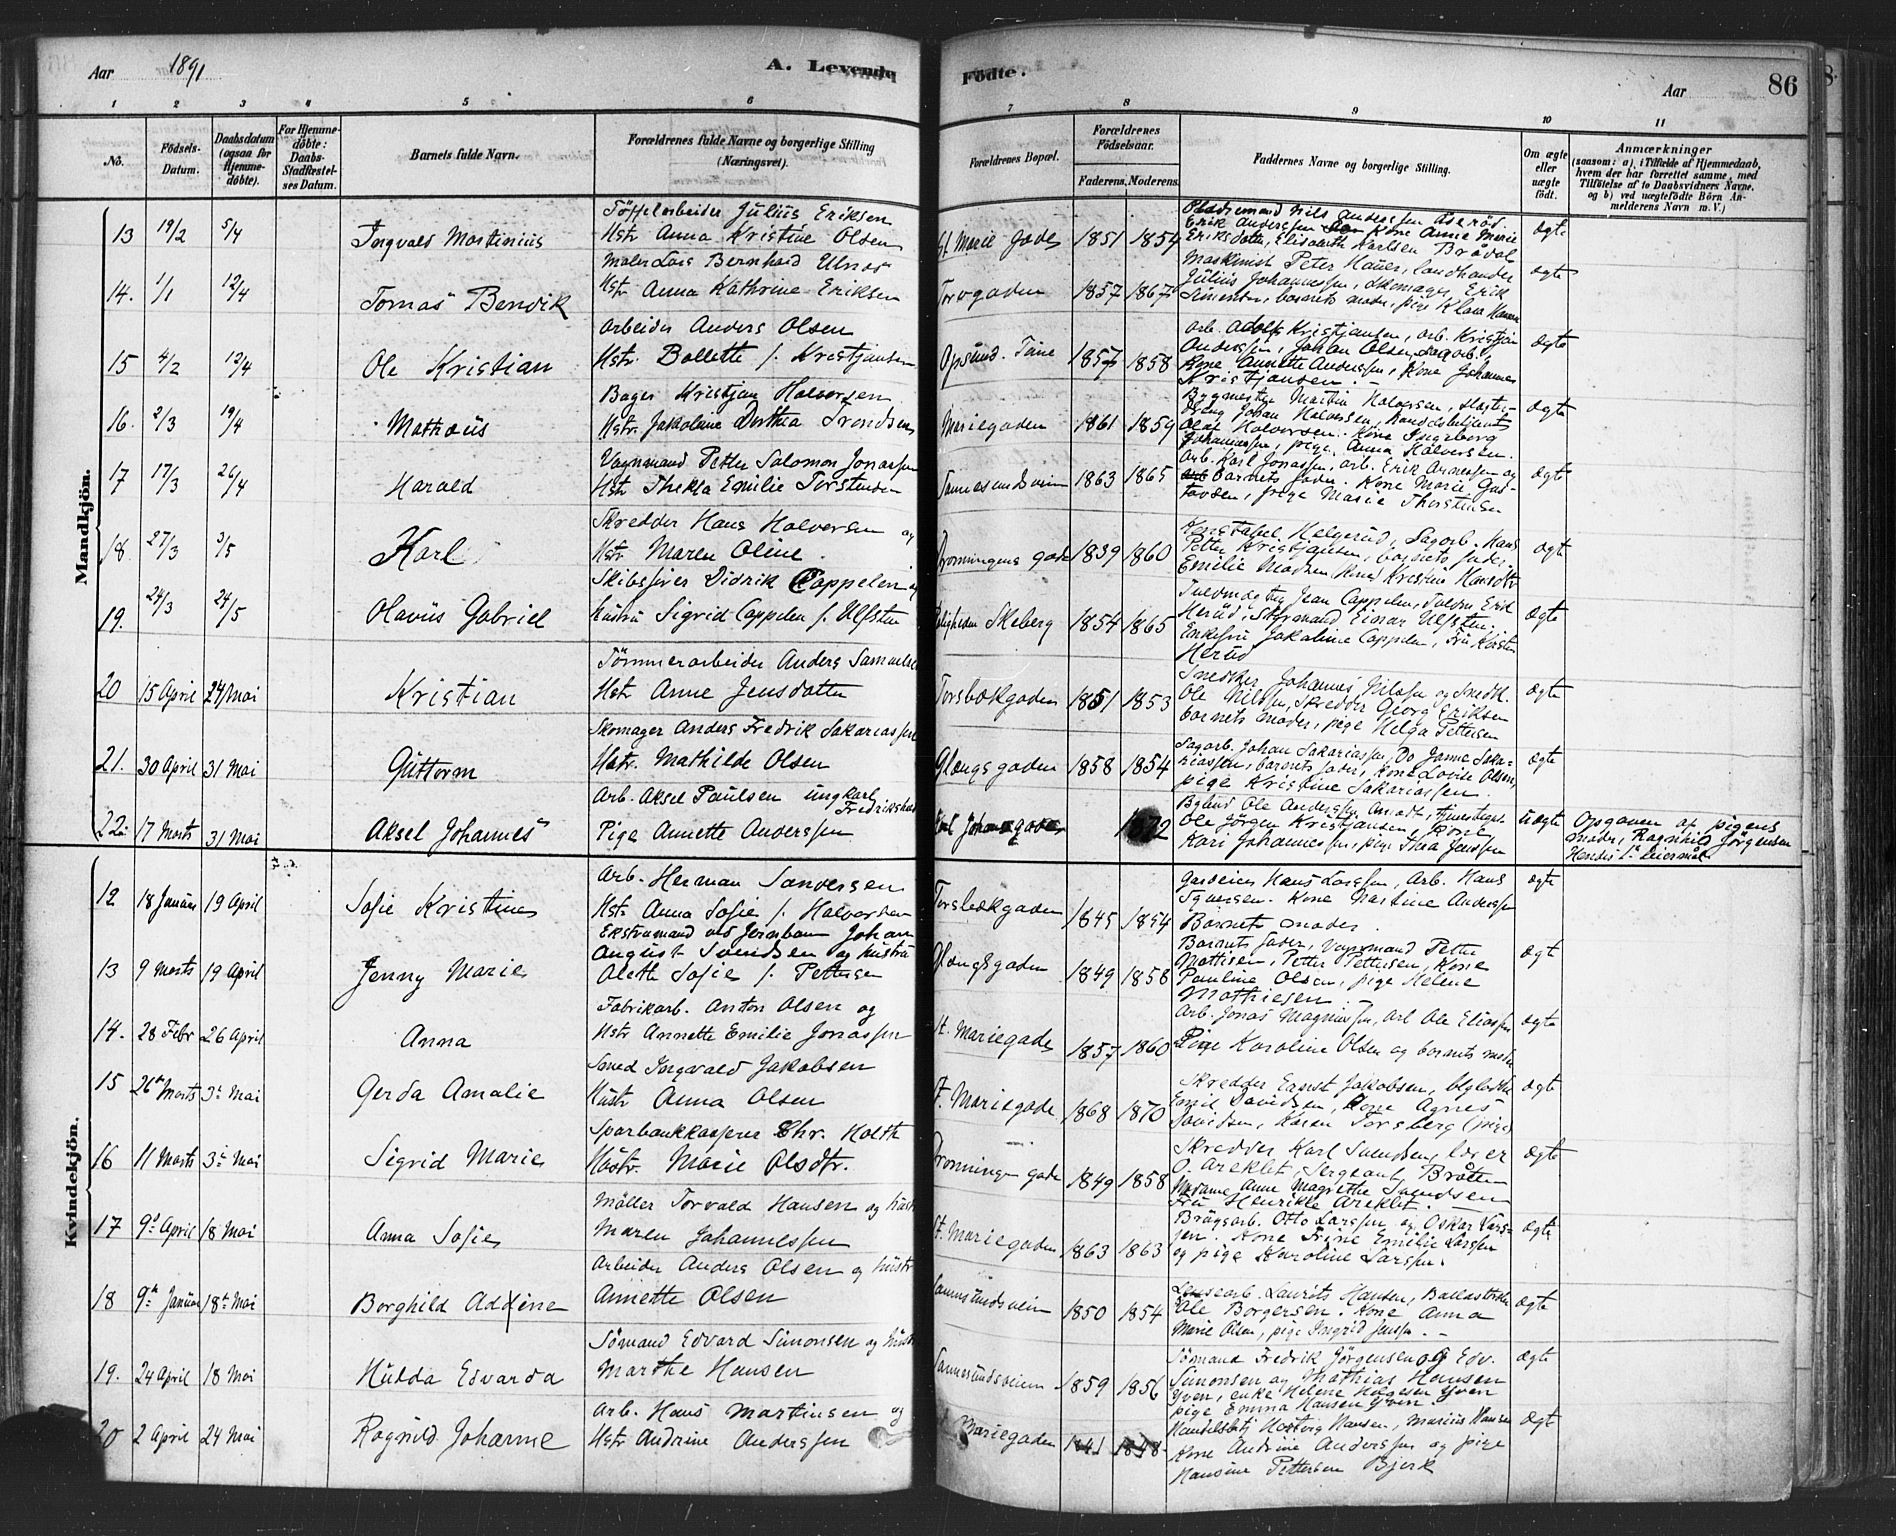 Aar 1891
A. Levende
Fødte.
Aar
86
1 2 3 4 5 6 7 8 9 10 11
No.
Fødsels-Datum.
Daabsdatum (ogsaa for Hjemme-døbte).
For Hjemme-døbte: Daabs-Stadfæstel-ses Datum.
Barnets fulde Navn.
Forældrenes fulde Navne og borgerlige Stilling (Næringsvei).
Forældrenes Bopæl.
Forældrenes Fødselsaar.
Faderens. Moderens.
Faddernes Navne og borgerlige Stilling.
Om ægte eller uægte født.
Anmærkninger
(saasom: a), i Tilfælde af Hjemmedaab, hvem der har forrettet samme, med Tilføielse af to Daabsvidners Navne, og b) ved uægtefødte Børn Anmelderens Navn m. V.)
Mandkjøn.
13 19/2 5/4 Ingvald Martinius
Tøffelarbeider Julius Eriksen
Hstr Anna Kristine Olsen
St Marie gade 1851 1854
Nils Anderssen
Erik Anderssen Kone Anne Marie
Eriksdatter, Elisabeth Karlsen Brådal
ægte
14. 1/1 12/4 Tomas Bendik
Maler Lois Bernhard Ulnes
Hstr Anna Kathrine Eriksen
Torvgaden 1857 1867
Maskinist Peter Hauer, Landhandler
Julius Johannessen, Skomager Erik
Simensen, barnets moder, pige Klara Hansen
ægte
15 4/2 12/4 Ole Kristian
Arbeider Anders Olsen
Hstr. Bollette f. Kristjansen
Opsund. Tune 1857 1858
Arb. Adolf Kristjansen, arb. Kristjan
Anderssen, Johan Olsen, Sagarb.,
Kone Annette Anderssen, Kone Johannes
Kristjansen.
ægte
16. 2/3 19/4 Mathæus
Bager Kristjan Halvorsen
Hstr. Jakobine Dorthea Trondsen
Mariegaden 1861 1859
Bygmester Martin Halvorsen,
Johan Halvorsen, Handelsbetjent
Olaf Halvorsen. Kone Ingeborg
Johannessen, pige Anna Halvorsen.
ægte
17 17/3 26/4 Harald
Vognmand Petter Salomon Jonassen
Hstr Thekla Emilie Torstensen
Sannesundsveien 1863 1865
Arb. Karl Jonassen, arb. Erik Arnesen og
Barnets fader. Kone Marie Gus-
tavsen, pige Marie Thorstensen
ægte
18. 27/3 3/5 Karl
Skredder Hans Halvorsen og
Hstr. Maren Oline.
Dronningens gade 1839 1860
Konstabel Helgerud, Sagarb. Hans
Petter Kristjansen, barnets fader.
Emilie Madsen (Kone) Kristine Hansdtr
ægte
19. 24/3 24/5 Olavus Gabriel
Skibsfører Didrik Cappelen og
hustru Sigrid Cappelen f. Ulfsten
Skeberg 1854 1865
Jean Cappelen,
Herud, Styrmand Einar Ulfsten.
Enkefru Jakobine Cappelen, Fru Kirsten
Herud
ægte
20 15 April 24 Mai Kristian
Tømmerarbeider Anders Samuelsen
Hstr Anne Jensdatter
Torsbækgaden 1851 1853
Snedker Johannes Nilsen og Snedk.
Ole Nilssen, Skredder Georg Eriksen
barnets moder, pige Helga Pettersen
ægte
21. 30 April 31 Mai Guttorm
Skomager Anders Fredrik Sakariassen
Hstr. Mathilde Olsen
Glængsgaden 1858 1854
Sagarb. Johan Sakariassen, Do Janne Saka-
riassen, barnets fader, Kone Lovise Olsen,
pige Kristine Sakariassen.
ægte
22. 17 Marts 31 Mai Aksel Johannes
Arb. Aksel Paulsen ungkarl Fredrikshald
Pige Annette Anderssen
Karl Johans gade 1872
Ole Anderssen
Ole Jørgen Kristjansen, Kone
Kari Johannessen, pige Thea Jenssen
uægte
Opgaven af pigens
moder, Ragnhild Jørgensen
Hendes 1ste Leiermål
Kvindekjøn.
12 18 Januar 19 April Sofie Kristine
Arb. Herman Sanversen
Hstr Anna Sofie f. Halvorsen
Torsbækgaden 1845 1854
Gardeier Hans Larssen, Arb. Hans
Kone Martine Anderssen
Barnets moder.
ægte
13 9 Marts 19 April Jenny Marie
Ekstramand ved Jernbanen Johan
August Svendsen og hustru
Oleth Sofie f. Pettersen
Glængsgaden 1849 1858
Barnets fader, Vognmand Petter
Mattisen, Petter Pettersen, Kone
Pauline Olsen, pige Helene
Mathiesen
ægt
14. 28 Febr 26 April Anna
Fabrikarb. Anton Olsen og
Hstr Annette Emilie Jonassen
St. Mariegade 1857 1860
Arb. Jonas Magnussen, arb Ole Eliassen
Pige Karoline Olsen og barnets moder
ægte
15 26de Marts 3de Mai Gerda Amalie
Smed Ingvald Jakobsen
Hustr Anna Olsen
St. Mariegade 1868 1870
Skredder Ernst Jakobsen,
Emil Davidsen, Kone Agnes
Davidsen, Karen Torsberg (pige)
ægte
16 11 Marts 3de Mai Sigrid Marie
Sparbankkasserer Chr. Holth
Hustr. Marie Olsdtr.
Dronningens gade 1849 1858
Skredder Karl Svendsen, lærer
O. Areklet, Sergeant Bråten
Madame Anne Magrethe Svendsen
Fru Henrikke Areklet.
ægte
17 9de April 18 Mai Anna Sofie
Møller Torvald Hansen og hustr
Maren Johannessen
St. Mariegaden 1863 1863
Brugsarb. Otto Larssen og Oskar Lars-
sen. Kone Trine Emilie Larssen
og pige Karoline Larssen.
ægte
18 9de Januar 18de Mai Borghild Addine
Arbeider Anders Olsen og hustr
Annette Olsen
Sannesundsveien 1850 1854
Lensearb. Laurits Hansen,
Ole Borgersen. Kone Anna
Marie Olsen, pige Ingrid Jenssen.
ægte
19. 24 April 18 Mai Hulda Edvarda
Sømand Edvard Simonsen og hustr
Marthe Hansen
Sannesundsveien 1859 1856
Sømand Fredrik Jørgensen og Edv.
Simonsen og Mathias Hansen
Yven, enke Helene Helgesen Yven
pige Emma Hansen Yven.
ægte
20 2 April 24 Mai Ragnild Johanne
Arb. Hans Martinsen og
Hstr Andrine Anderssen
Mariegaden 1841 1848
Handelsbetj Hansen, Marius Hansen
Kone Andrine Anderssen og pige
Hansine Pettersen Bjerk
ægt